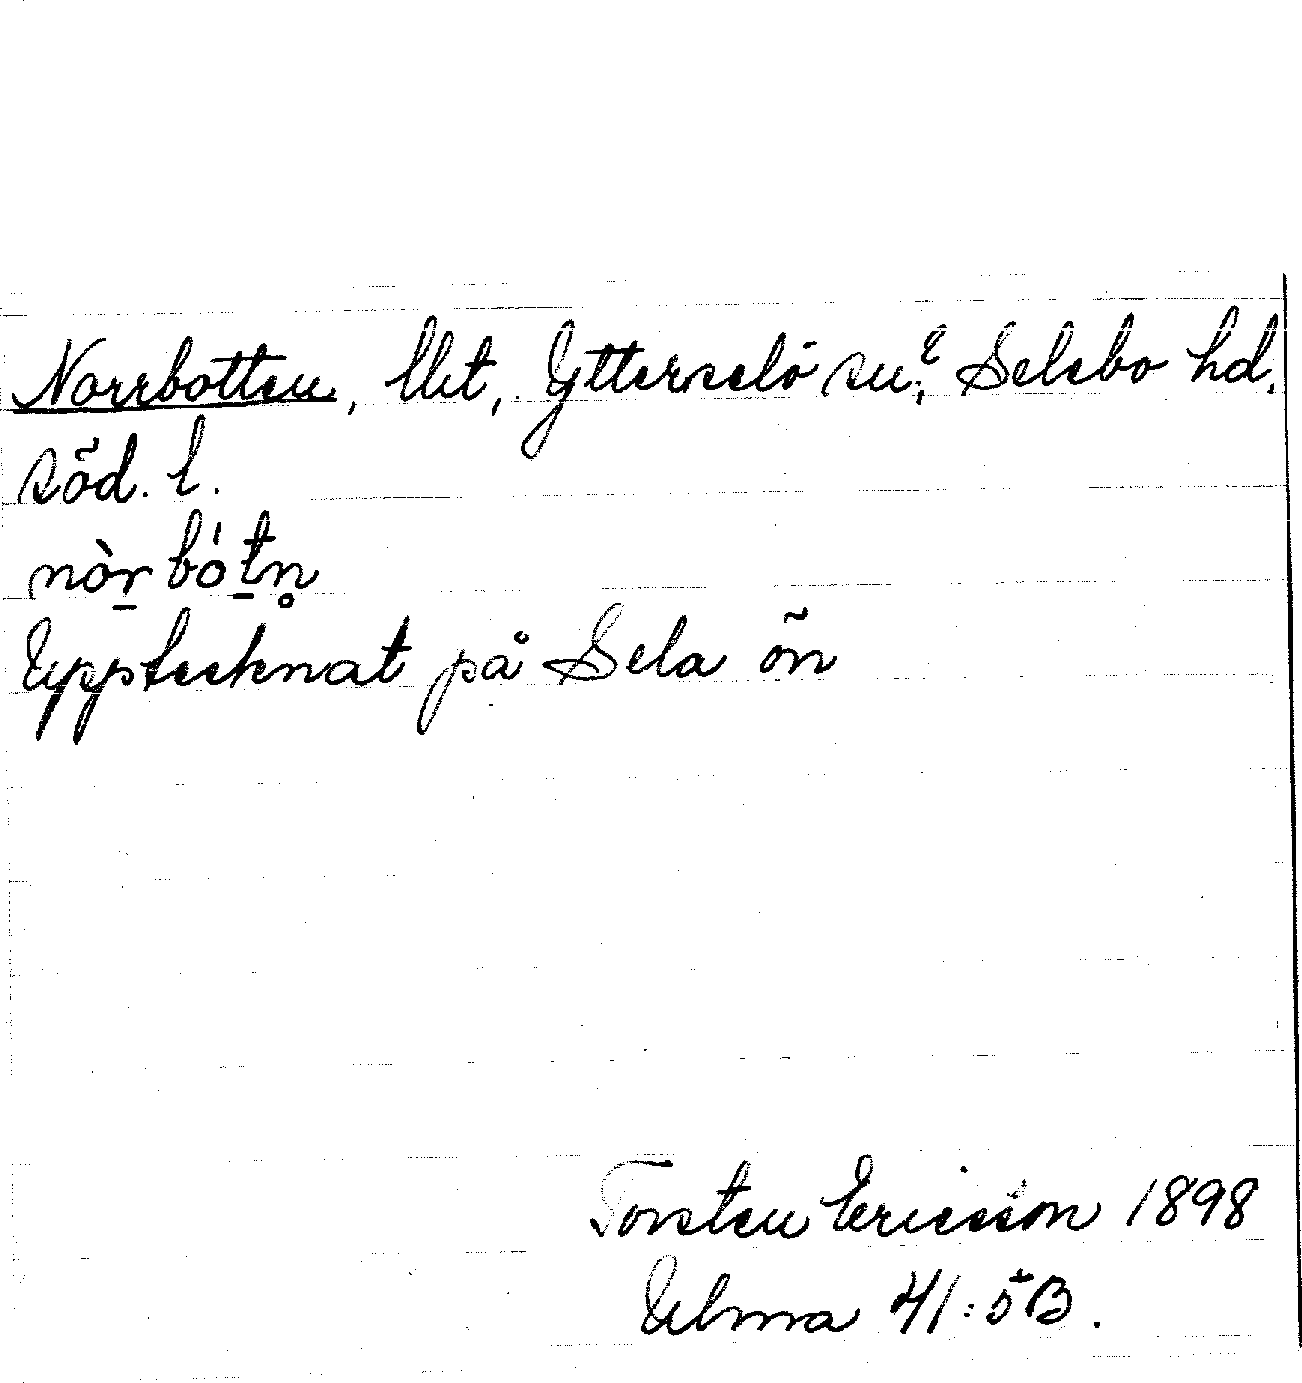 Norrbotten, lht, Ytterselö sn?, Selebo hd.
söd. l.
nòr̲bót̲n̥
Upptecknat på Sela ön
Torsten Ericsson 1898
Ulma 41:5B.